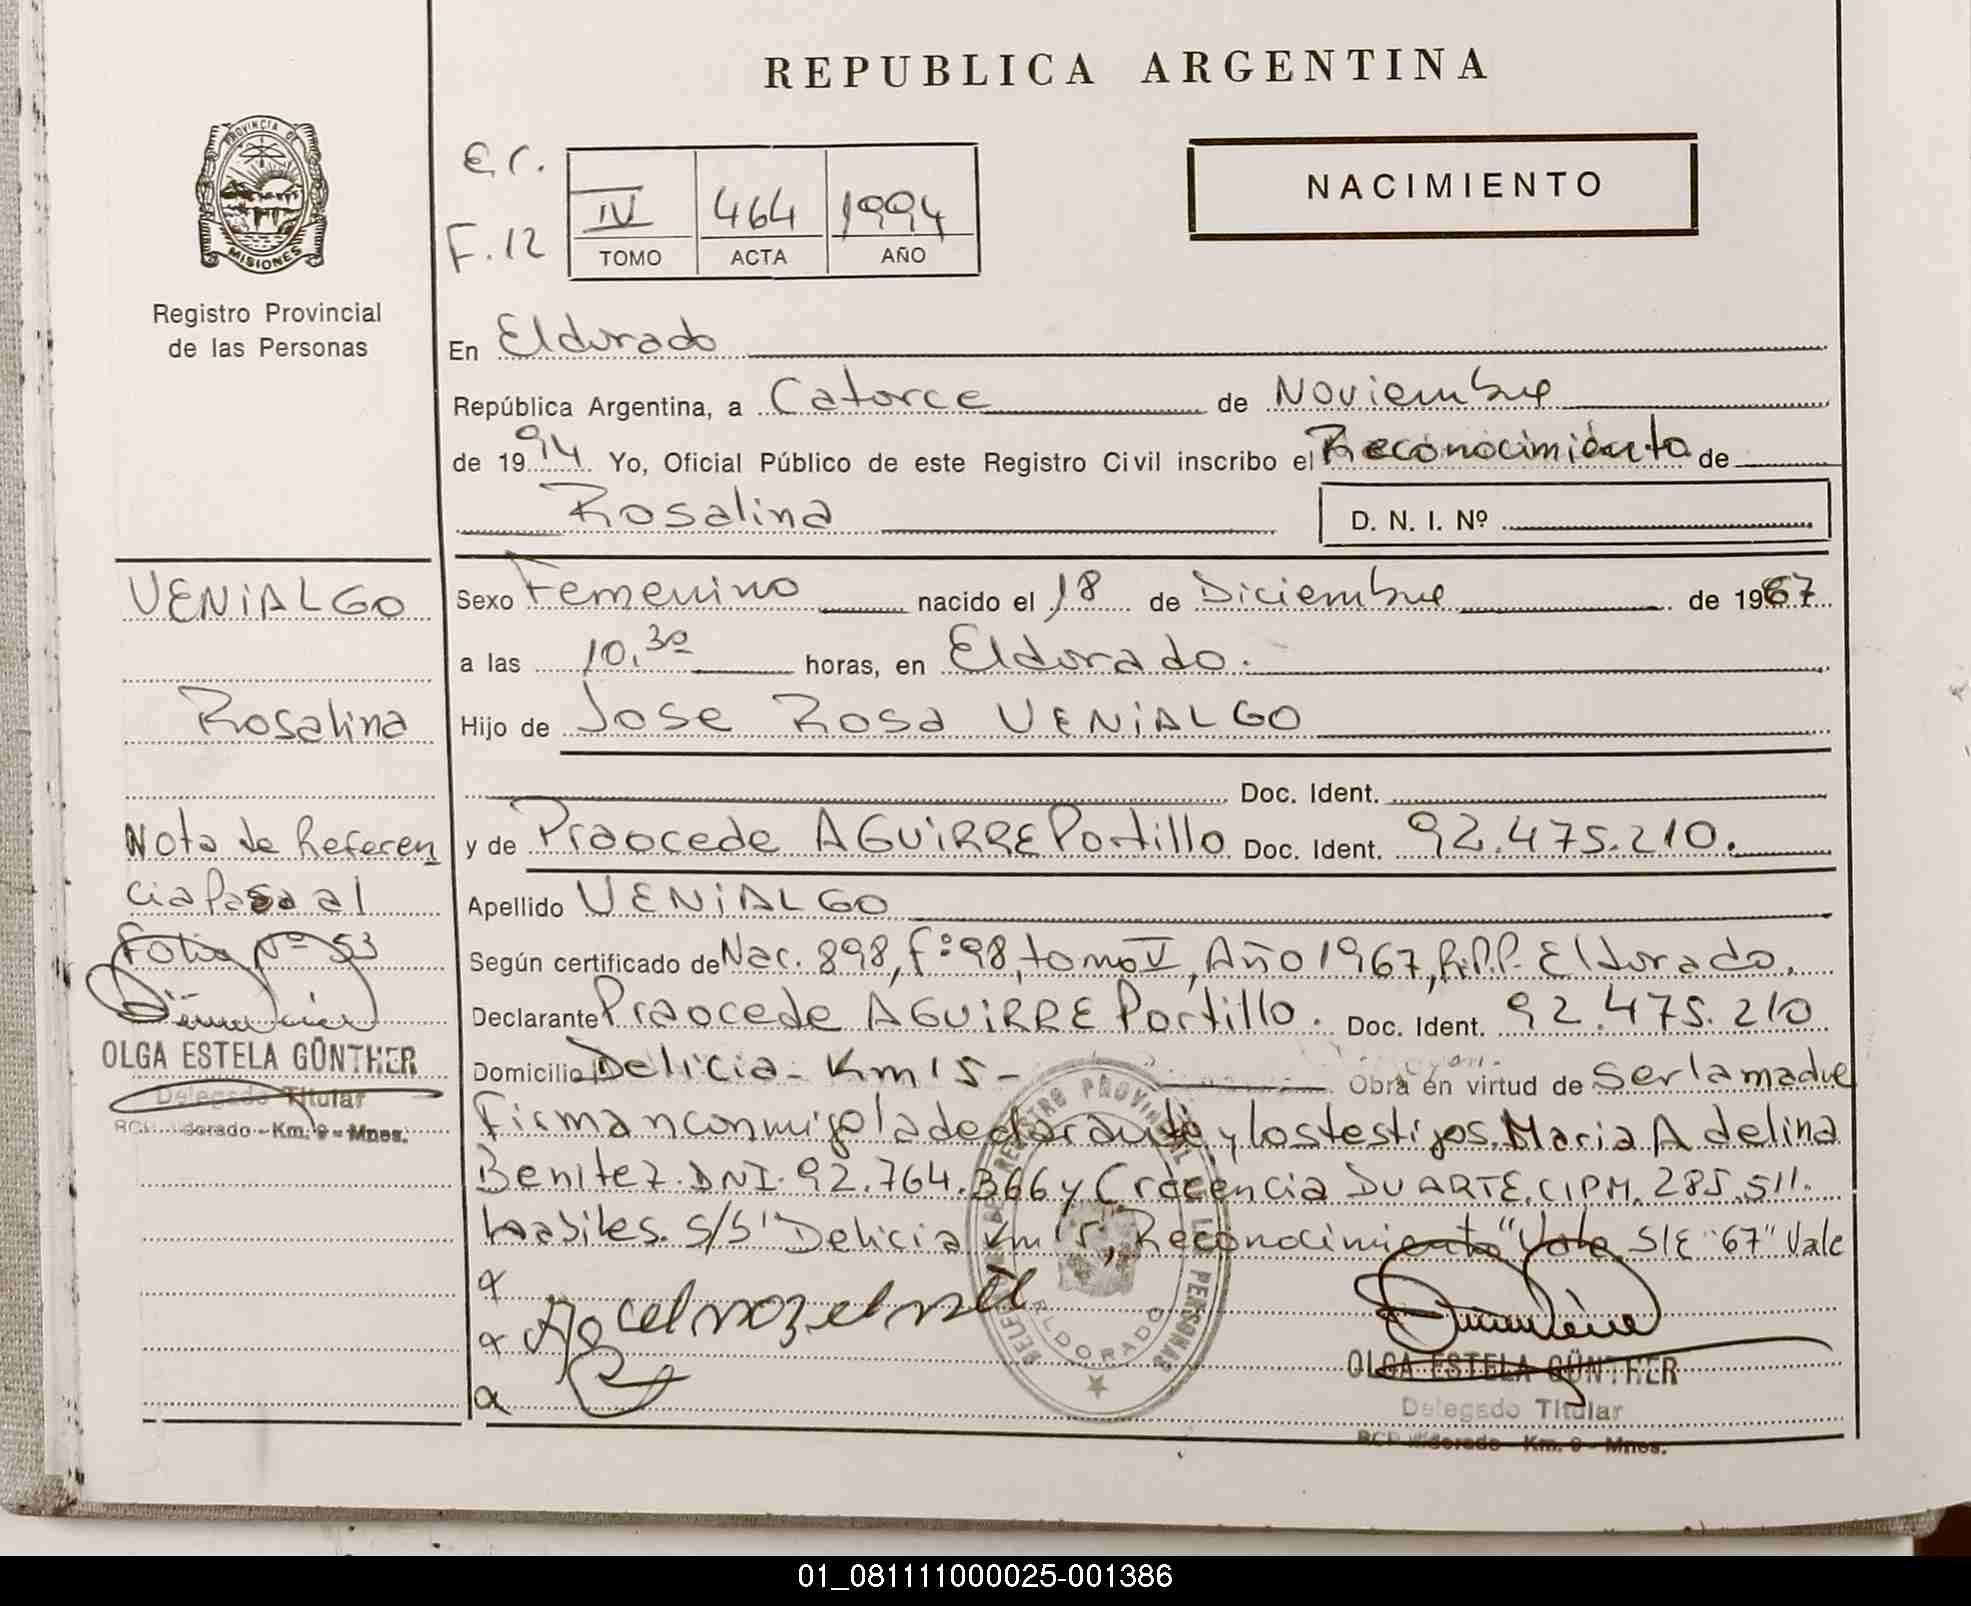 REPUBLICA ARGENTINA
PROVINCIA DE MISIONES
Registro Provincial
de las Personas
E.C.
F. 12
IV 464 1994
TOMO ACTA AÑO
NACIMIENTO
En Eldorado
República Argentina, a Catorce de Noviembre
de 1994 Yo, Oficial Público de este Registro Civil inscribo el Reconocimiento de
Rosalina D. N. I. Nº
VENIALGO
Rosalina
Nota de Referen
cia Pasa al
Folio Nº 53
OLGA ESTELA GÜNTHER
Delegado Titular
Eldorado - Km. 9 - Mnes.
Sexo Femenino nacido el 18 de Diciembre de 1967
a las 10,30 horas, en Eldorado.
Hijo de Jose Rosa VENIALGO
Doc. Ident.
y de Praocede AGUIRRE Portillo Doc. Ident. 92.475.210.
Apellido VENIALGO
Según certificado de Nac. 898, F:98, tomo V, Año 1967, R.P.P. Eldorado.
Declarante Praocede AGUIRRE Portillo. Doc. Ident. 92.475.210
Domicilio Delicia - Km 15 - Obra en virtud de ser la madre
Firman conmigo la declarante y los testigos. Maria Adelina
Benitez. DNI. 92.764.366 y Crecencia DUARTE. CIPM. 285.511.
habiles. S/b "Delicia Km 15, Reconocimiento" Vale. S/E "67" Vale
REGISTRO PROVINCIAL DE LAS PERSONAS
ELDORADO
OLGA ESTELA GÜNTHER
Delegado Titular
Eldorado - Km. 9 - Mnes.
01_081111000025-001386